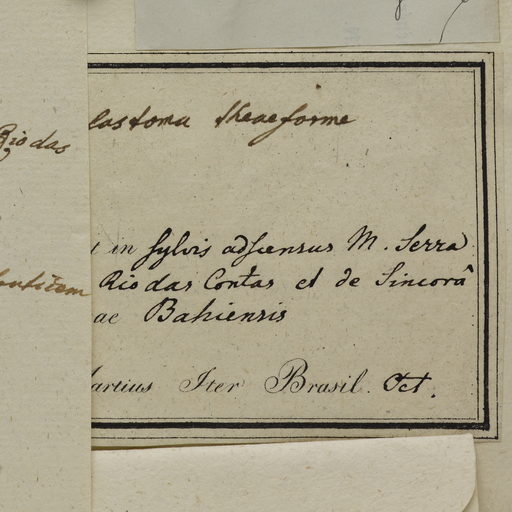 Rio das
lastoma theaeforme
t in sylvis adscensus M. Serra
Rio das Contas et de Sincorâ
ae Bahiensis
artius Iter Brasil. Oct.